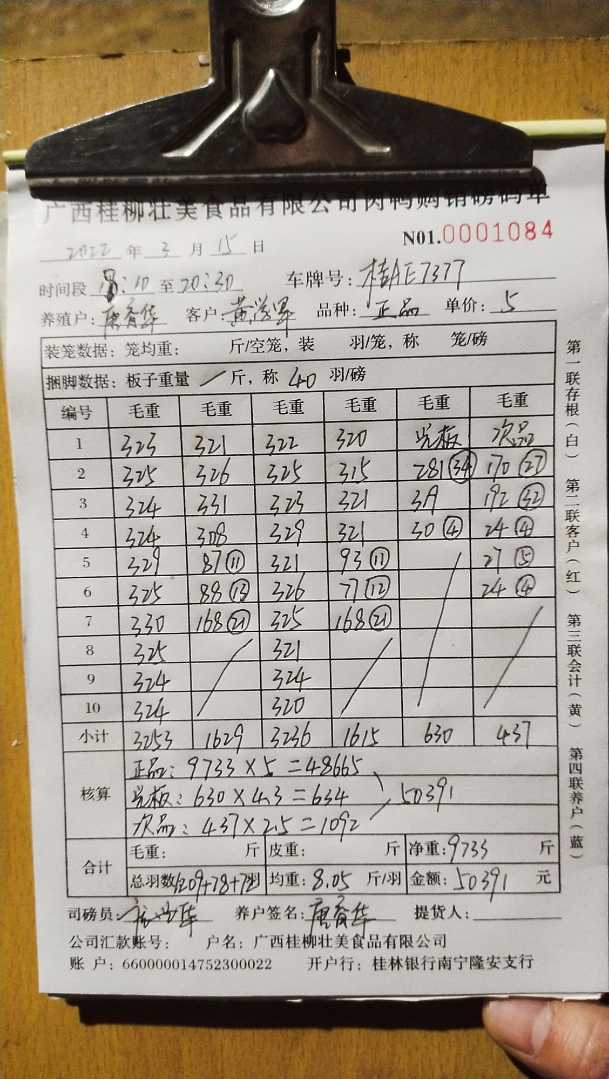 广西桂柳壮美食品有限公司肉鸭购销磅码单
2022 年 3 月 15 日 N01.0001084
时间段 18:10 至 20:30 车牌号: 桂AE7377
养殖户: 唐 华 客户: 黄 品种: 正品 单价: 5
装笼数据: 笼均重: 斤/空笼, 装 羽/笼, 称 笼/磅
捆脚数据: 板子重量 / 斤, 称 40 羽/磅
编号 毛重 毛重 毛重 毛重 毛重 毛重
1 323 321 322 320 板 次品
2 325 326 325 315 281(34) 170(27)
3 324 331 323 321 319 192(32)
4 324 308 329 321 30(4) 24(4)
5 329 87(11) 321 93(11) 27(5)
6 325 88(13) 326 77(12) 24(4)
7 330 168(21) 325 168(21)
8 325 321
9 324 324
10 324 320
小计 3253 1629 3236 1615 630 437
核算
正品: 9733 × 5 = 48665
板: 630 × 4.3 = 634 50391
次品: 437 × 2.5 = 1092
合计 毛重: 斤 皮重: 斤 净重: 9733 斤
总羽数 1209+78+72 羽 均重: 8.05 斤/羽 金额: 50391 元
司磅员: 华 养户签名: 唐 华 提货人:
公司汇款账号: 户名: 广西桂柳壮美食品有限公司
账 户: 660000014752300022 开户行: 桂林银行南宁隆安支行
第一联存根(白) 第二联客户(红) 第三联会计(黄) 第四联养户(蓝)